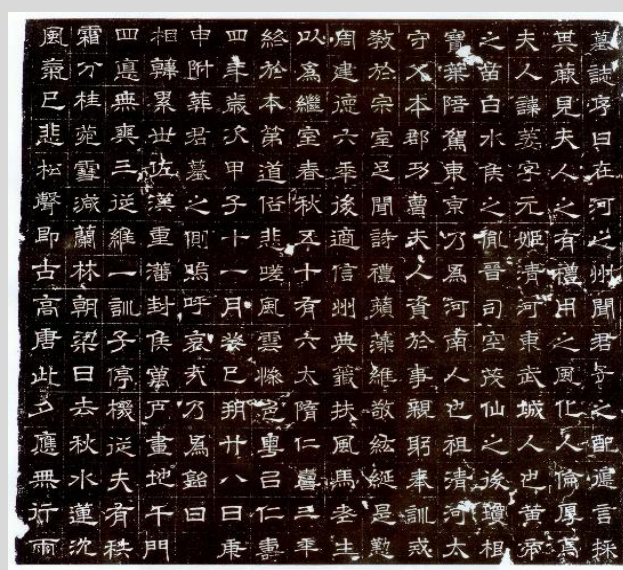 墓誌序曰在河之州聞君子之配邇言採
其蕨見夫人之有禮用之風化人倫厚焉
夫人諱姜字元姬清河東武城人也黃帝
之苗白水侯之胤晉司空茂仙之後瓊相
寶葉陪駕東京乃爲河南人也祖清河太
守父本郡功曹夫人資於事親躬奉訓戒
教於宗室足聞詩禮蘋藻維敬紘綖是懃
周建德六年後適信州典籤扶風馬老生
以爲繼室春秋五十有六太隋仁壽三年
終於本第道俗悲嗟風雲慘色粵以仁壽
四年歲次甲子十一月癸巳朔廿八日庚
申附葬君墓之側嗚呼哀哉乃爲銘曰
相韓累世佐漢重藩封侯萬戶畫地千門
四德無爽三從維一訓子停機從夫有秩
霜分桂菀雪滅蘭林朝梁日去秋水蓮沉
風氣已悲松聲即古高唐此夕應無行雨